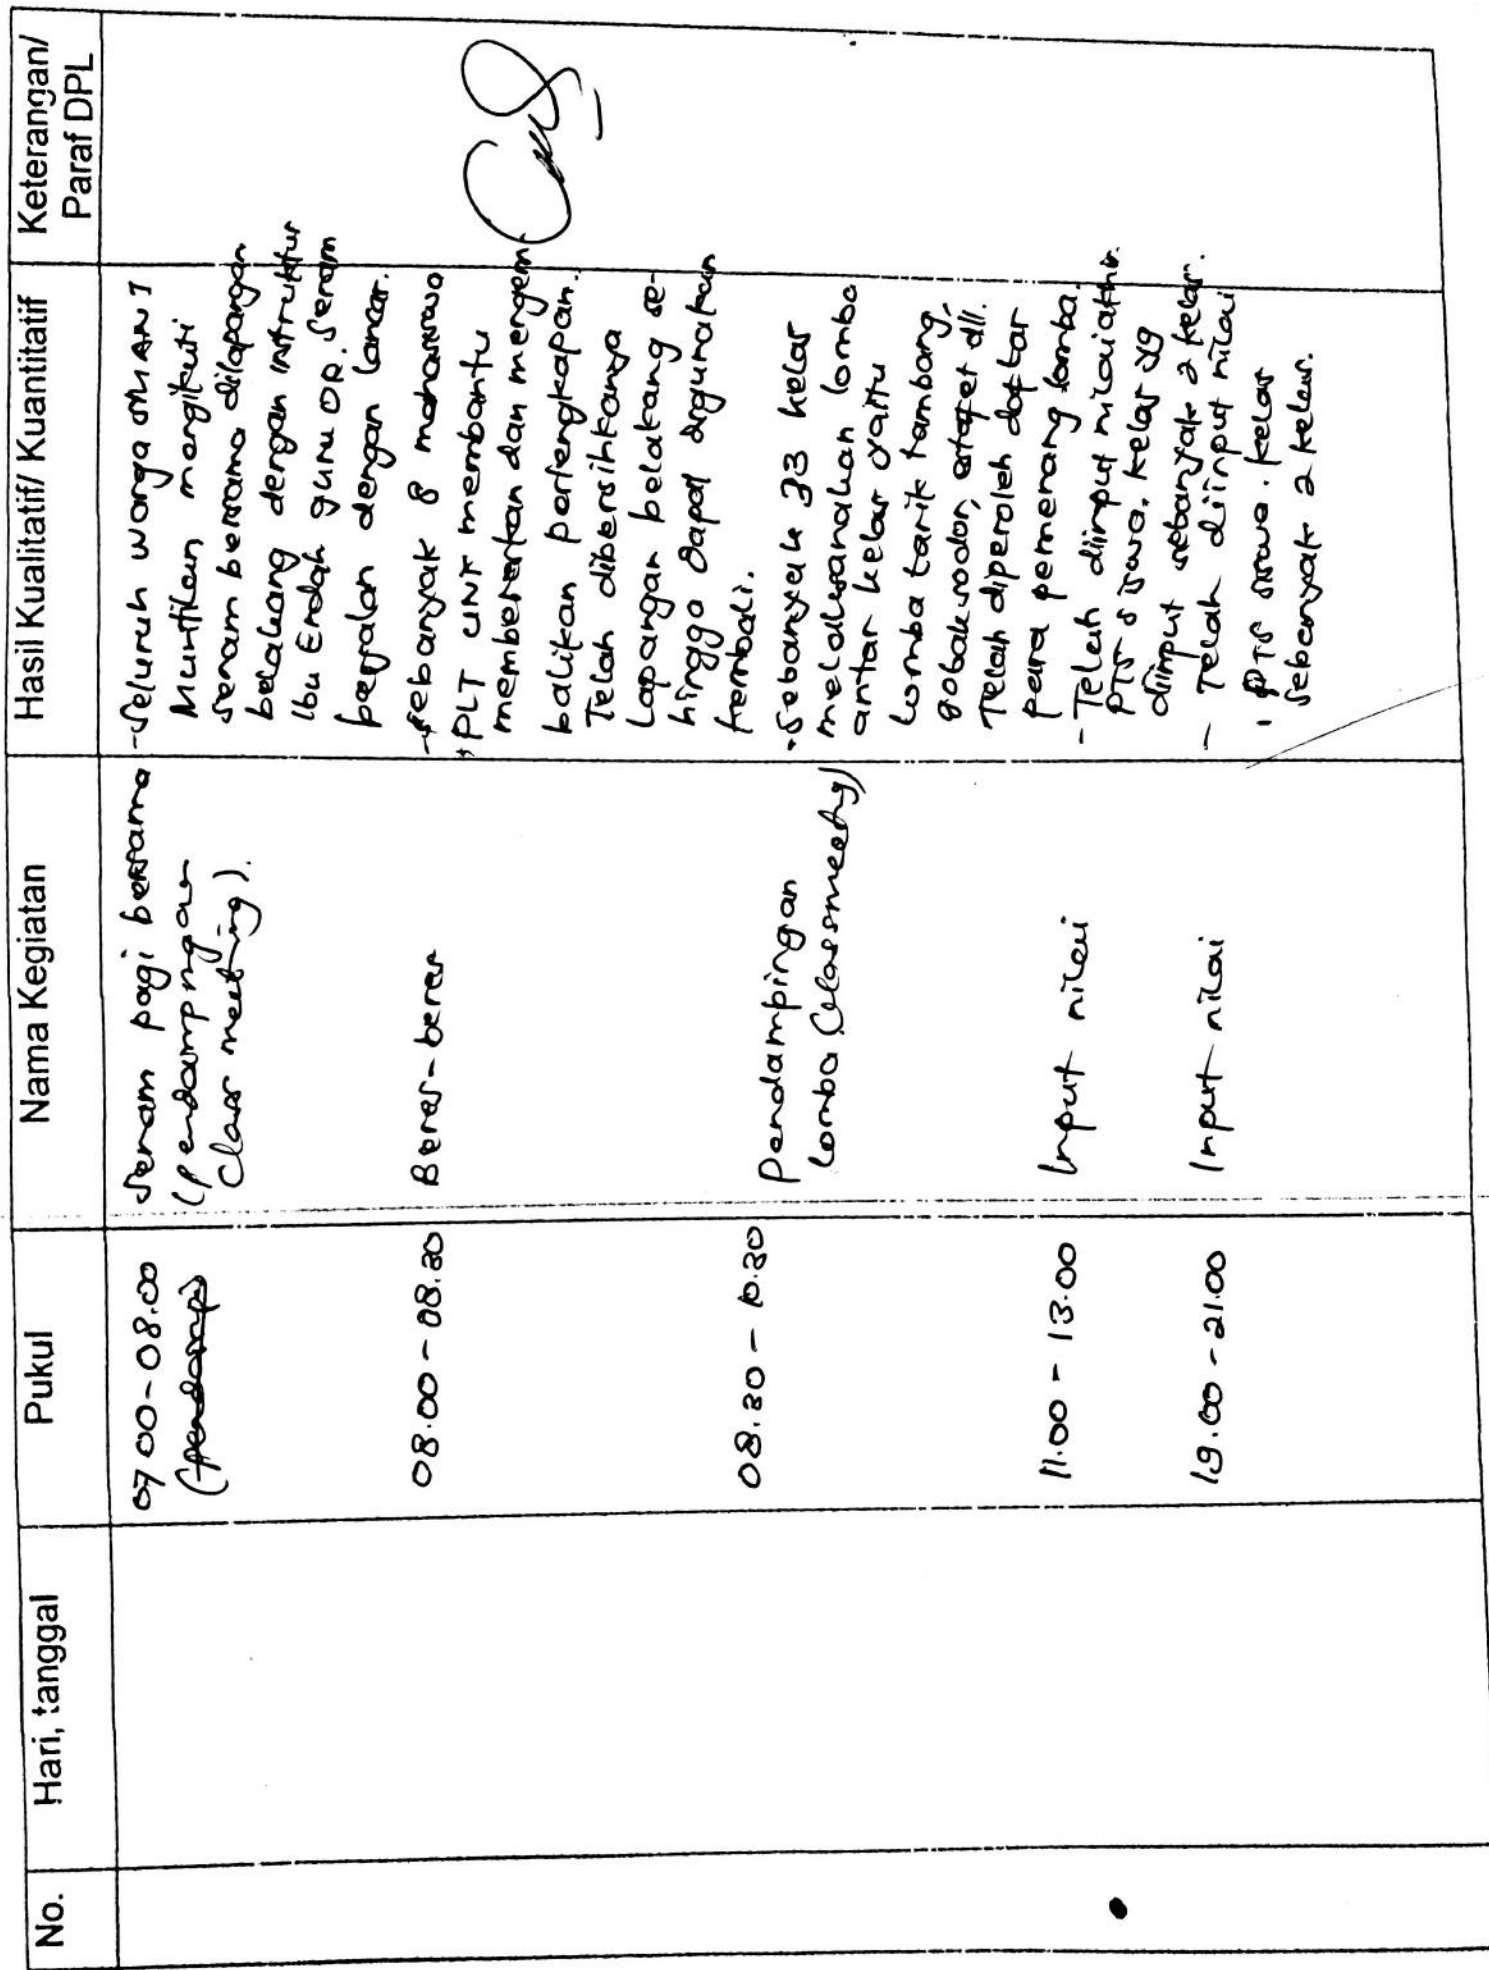 No.
Hari, tanggal
Pukul
Nama Kegiatan
Hasil Kualitatif/ Kuantitatif
Keterangan/
Paraf DPL
07 00-08.00
Senam pagi bersama
(pendampingan
Class meeting).
-Seluruh warga SMAN 1
Muntilan mengikuti
senam bersama dilapangan
belakang dengan instruktur
Ibu Endah guru OR. Senam
berjalan dengan lancar.
08.00-08.30
Beres-beres
-sebanyak 8 mahasiswa
PLT UNY membantu
membereskan dan mengem
balikan perlengkapan.
Telah dibersihkanya
Lapangan belakang se-
hingga dapat digunakan
kembali.
08.30-10.30
Pendampingan
lomba (classmeeting)
-Sebanyak 33 kelas
melaksanakan lomba
antar kelas yaitu
lomba tarik tambang,
gobaksodor, estafet dll.
Telah diperoleh daftar
para pemenang lomba.
11.00-13.00
Input nilai
-Telah diinput nilai akhir
PTS siswa. Kelas yg
diinput sebanyak 2 kelas.
19.00-21.00
Input nilai
- Telah diinput nilai
PTS siswa. kelas
sebanyak 2 kelas.